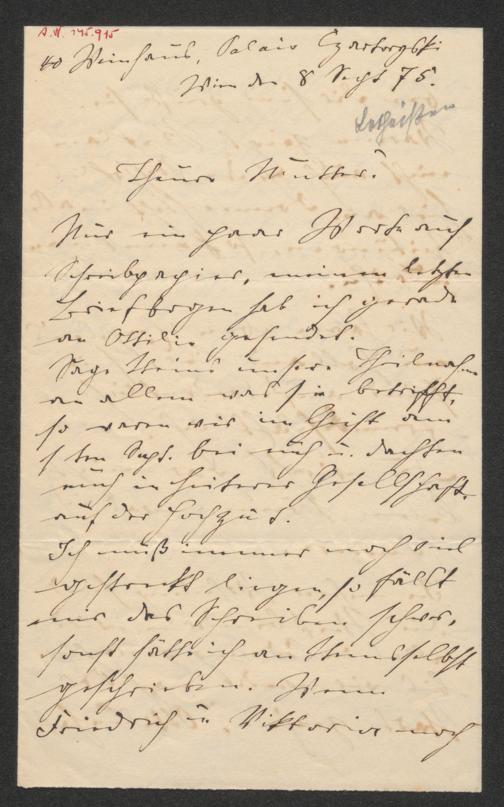 A.N. 145.915
40 Weinhaus, Palais Czartoryski
Wien den 8 Sept 75.
Theure Mutter!
Nur ein paar Worte auf
Schreibpapier, meinen letzten
Briefbogen hab ich gerade
an Ottilie gesendet.
Sage unsere Theilnahme
an allem was sie betrifft,
so waren wir im Geist am
1ten Sept. bei euch u. dachten
euch in heiterer Gesellschaft
auf der Hochzeit.
Ich muß immer noch viel
gestreckt liegen, so fällt
mir das Schreiben schwer,
sonst hätte ich an selbst
geschrieben. Wenn
Friedrich u Viktoria noch